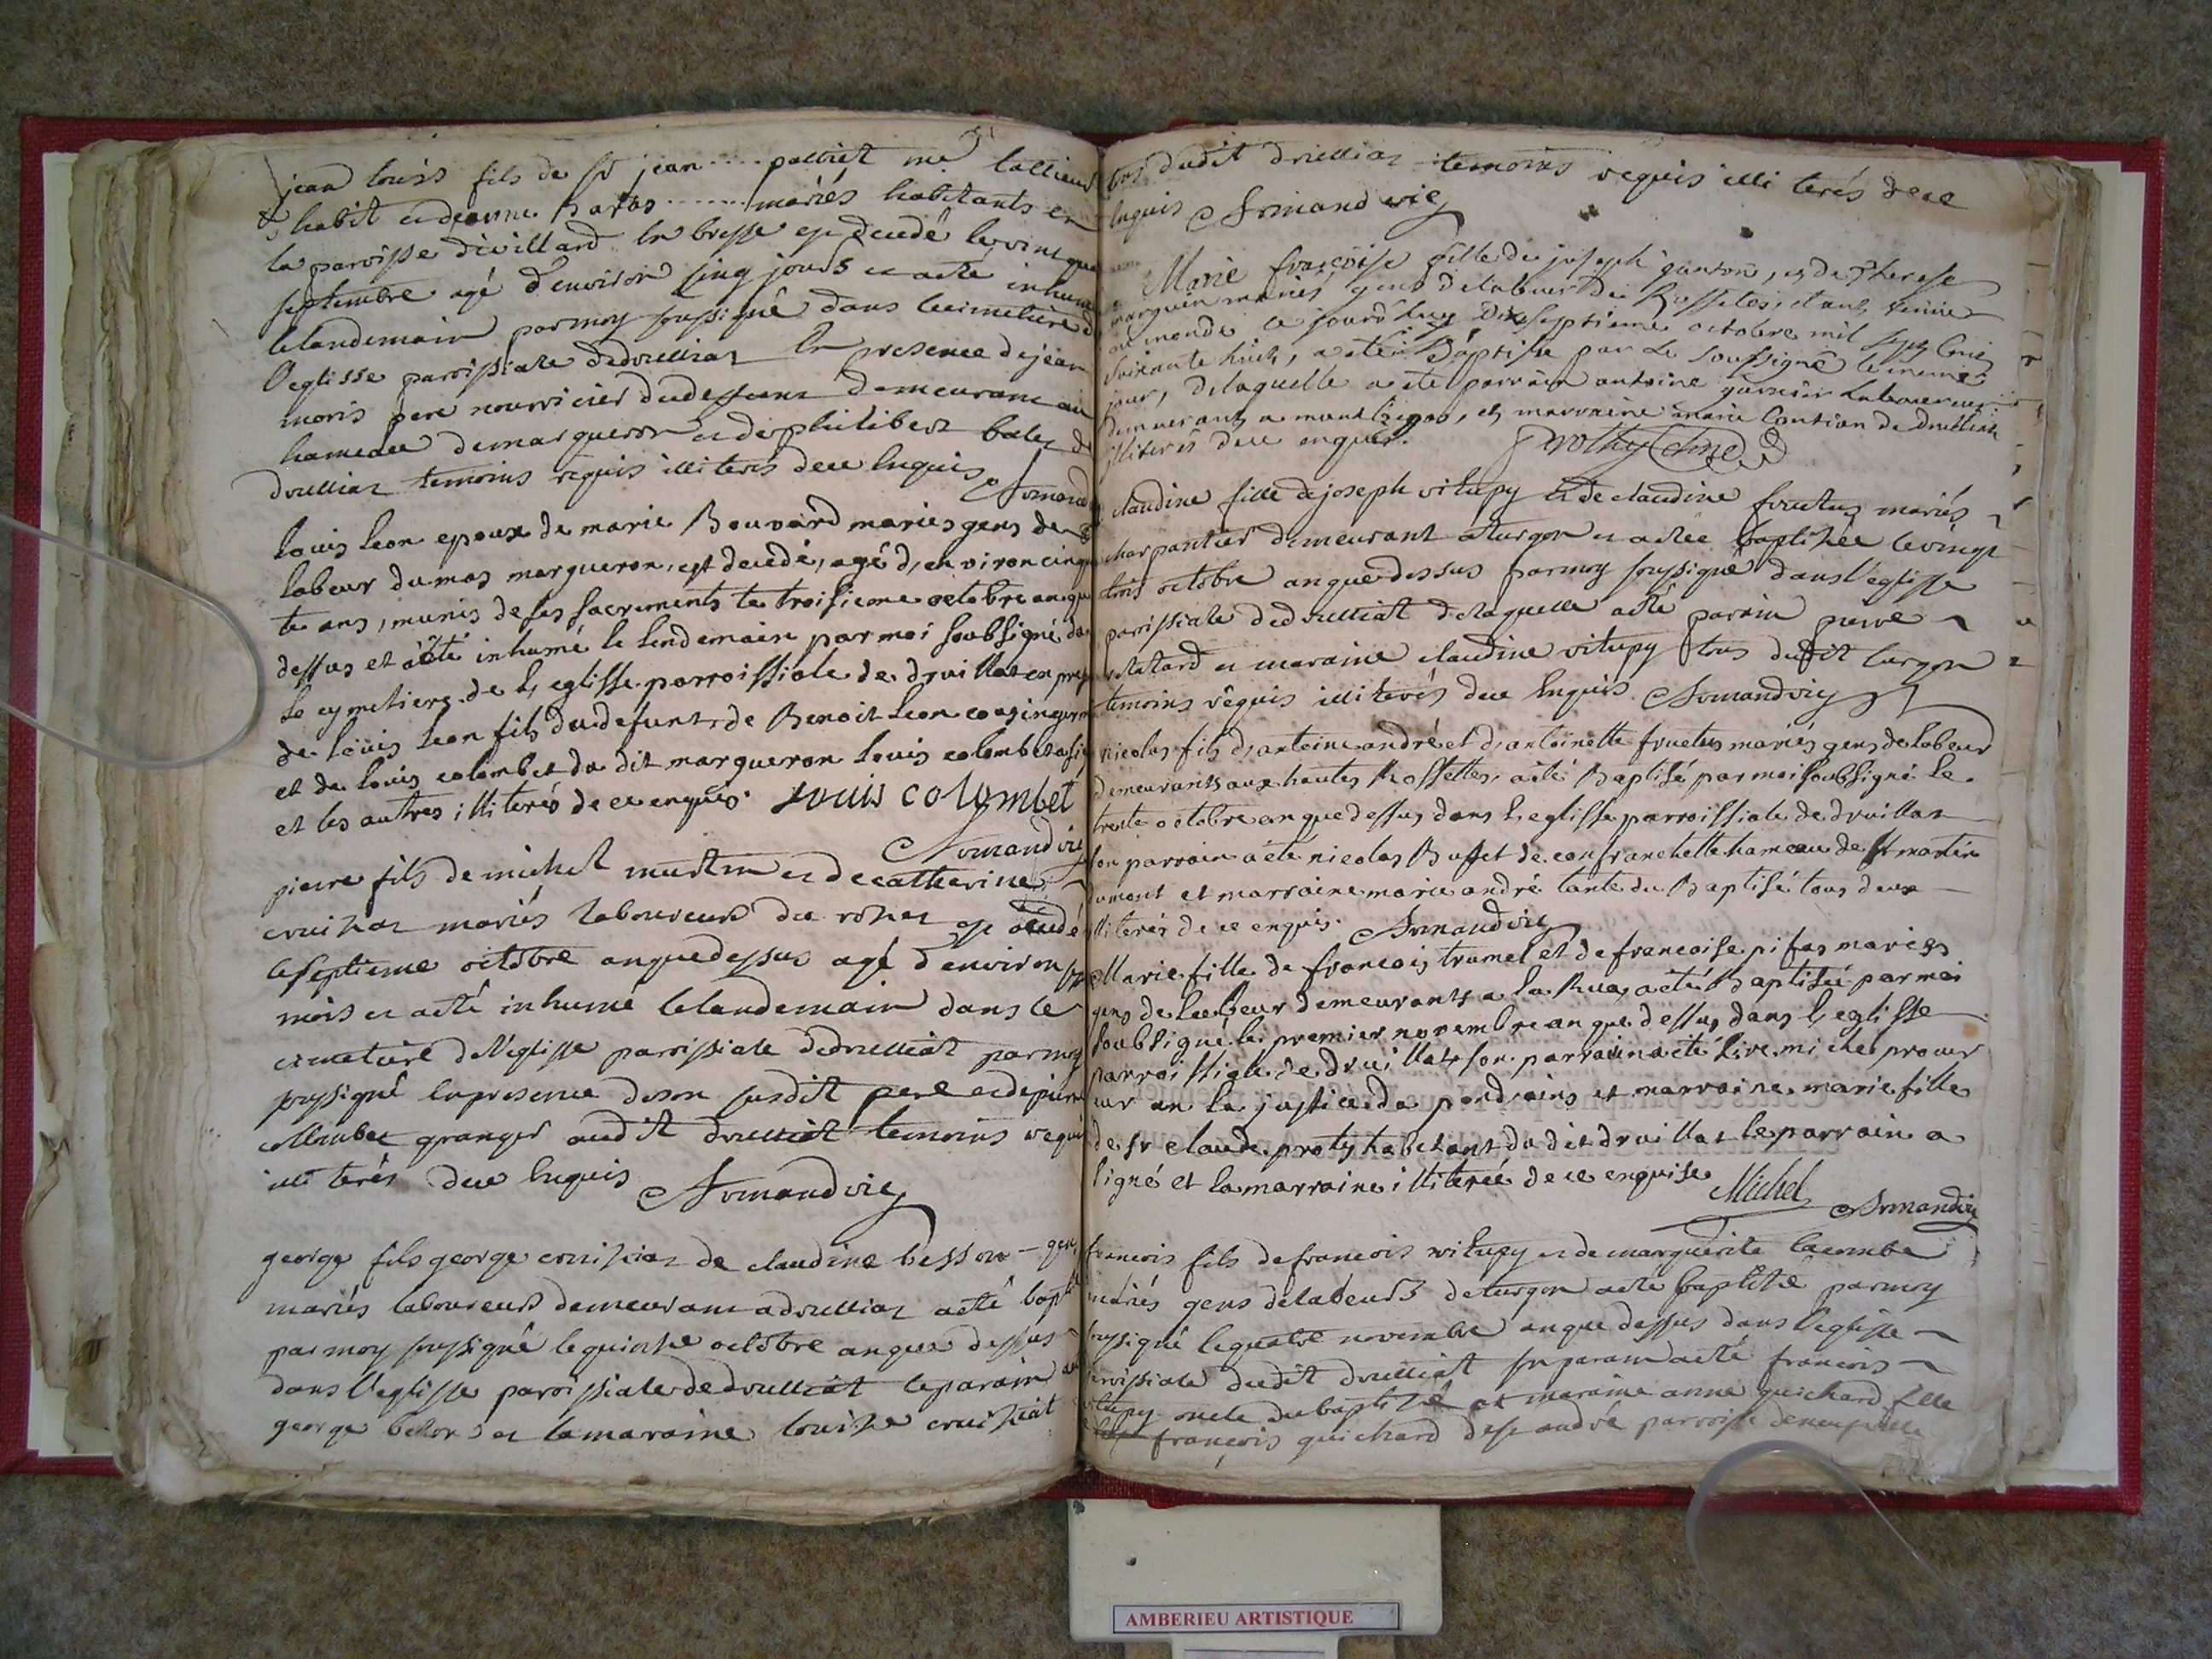 jean louis fils de Sr jean .... palliet me tallieur
habit et deanne Barbos ....... mariés habitants en
la paroisse divillard en bresse est decedé le vint que
septembre agé d'environ sinq jours et a eté inhumé
le landemain par moy soussigné dans le cimetiere d
l'eglisse parrissiale dedruilliat en presence de jean
moris pere nourricier dudessunt demeurant au
hameau demargueron et de philibert de
druilliat temoins requis illiterés de ce enquis Armand
louis leon epoux de marie Bouvard mariés gens de
labeur du mas margueron, est decedé, agé d'environ cinqu
te ans, munis de ses sacrements le troisieme octobre an que
dessus et a été inhumé le lendemain par moi soubsigné da
le cymetiere de l'eglisse parroissiale de druillat en pres
de loüis leon fils du defunt, de Benoit leon cousin germ
et de louis colombet du dit margueron louis colombet a sig
et les autres illiterés de ce enquis. Louis colombet
Armandvic
pierre fils de michel et de catherine
cruiziat mariés laboureur du est decedé
le septieme octobre anquedessus agé d'environ
mois et a eté inhumé le landemain dans le
cimetiere de l'eglisse parrissiale dedruilliat par moy
soussigné en presence deson susdit pere et depierre
granger audit druilliat temoins requis
illiterés de ce enquis Armandvic
george fils george cruiziat de claudine besson - gen
mariés laboureur demeurant a druilliat a eté bapt
par moy soussigné le quinze octobre anque dessus
dans l'eglisse paroissiale dedruilliat le parain
george et la maraine louise cruiziat
tous dudit druilliat temoins requis illiterés de ce
enquis Armandvic
Marie françoise fille de joseph , et de Therese
marguin mariés gens delabeur de Rossetes, etant venüe
au monde ce jourd'huy dixseptieme octobre mil sept cens
soixante huit, a été Baptisée par le soussigné le meme
jour, delaquelle a eté parrain antoine garnier Laboureur
demeurant a , et marraine marie de druillat
illiterés de ce enquis.
claudine fille de joseph vitupy et de claudine fructus mariés
charpantier demeurant a turgon et a etée baptisée le vingt
trois octobre anque dessus par moy soussigné dans l'eglisse
parrissiale dedruilliat delaquelle a eté parain pierre
et maraine claudine vitupy tous dudit turgon
temoins requis illiterés de ce enquis Armandvic
nicolas fils d'antoine andré et d'antoinette fructus mariés gens de labeur
demeurants aux hautes Rossettes, a été Baptisé par moi soubsigné le
trente octobre an que dessus dans l'eglisse parroissiale de druillat
son parrain a été nicolas Buffet de confranchette hameau de st martin
dumont et marraine marie andré tante du Baptisé tous deux
illiterés de ce enquis. Armandvic
Marie fille de francois tramel et de francoise pifas mariés
gens de labeur demeurants a la Rua, a été Baptisée par moi
soubsigné le premier novembre an que dessus dans l'eglisse
parroissiale de druillat son parrain a eté sire michel procur
eur en la justice de pondains et marraine marie fille
de sr claude proty habitant du dit druillat le parrain a
signé et la marraine illiterée de ce enquise Michel
Armandvic
francois fils de francois vitupy et de marguerite lacombe
mariés gens delabeurs deturgon a eté baptisé par moy
soussigné le quatre novembre anque dessus dans l'eglisse
parrissiale dudit druilliat son parain a eté francois
vitupy oncle dubaptisé et maraine anne guichard fille
françois guichard de st andré parroisse deneuville
AMBERIEU ARTISTIQUE